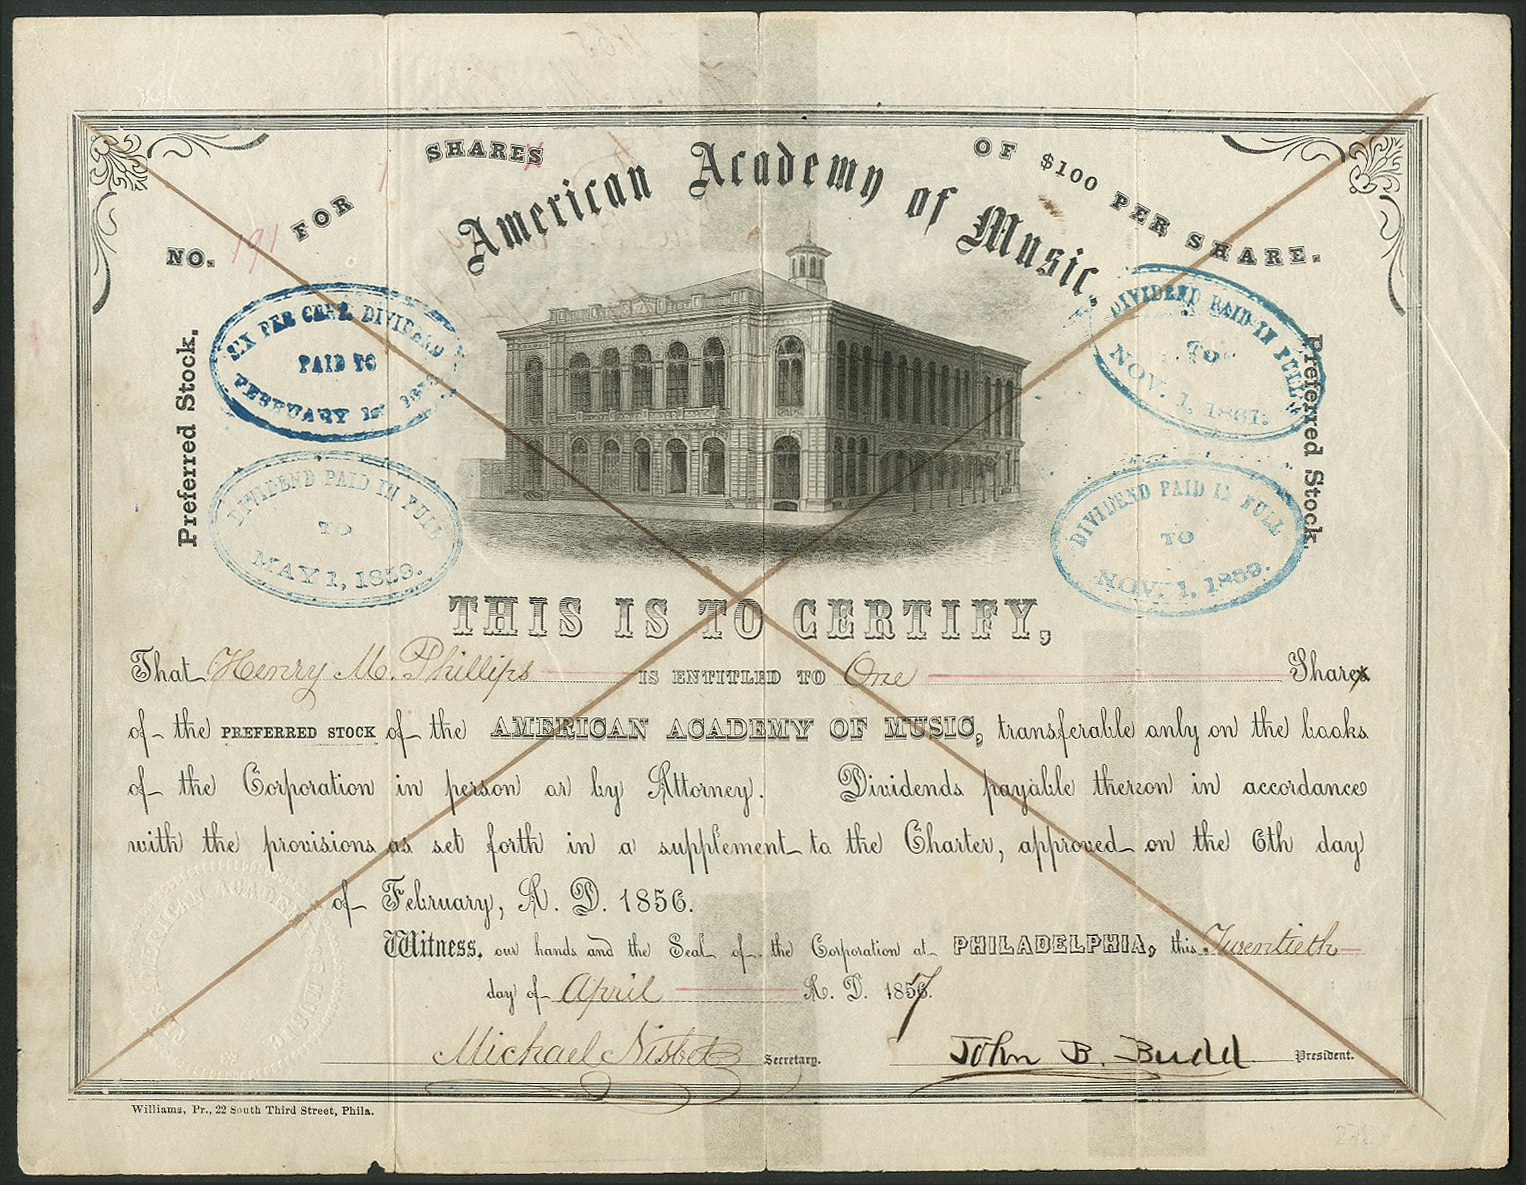 NO. 191 FOR 1 SHARES OF $100 PER SHARE.
American Academy of Music,
Preferred Stock.
Preferred Stock.
SIX PER CENT. DIVIDEND
PAID TO
FEBRUARY 1st
DIVIDEND PAID IN FULL
TO
NOV. 1, 1861.
DIVIDEND PAID IN FULL
TO
MAY 1, 1859.
DIVIDEND PAID IN FULL
TO
NOV. 1, 1859.
THIS IS TO CERTIFY,
That Henry M. Phillips IS ENTITLED TO One Shares
of the PREFERRED STOCK of the AMERICAN ACADEMY OF MUSIC, transferable only on the books
of the Corporation in person or by Attorney. Dividends payable thereon in accordance
with the provisions as set forth in a supplement to the Charter, approved on the 6th day
of February, A. D. 1856.
Witness, our hands and the Seal of the Corporation at PHILADELPHIA, this Twentieth
day of April A. D. 1857.
Michael Nisbet Secretary. John B. Budd President.
AMERICAN ACADEMY OF MUSIC
Williams, Pr., 22 South Third Street, Phila.